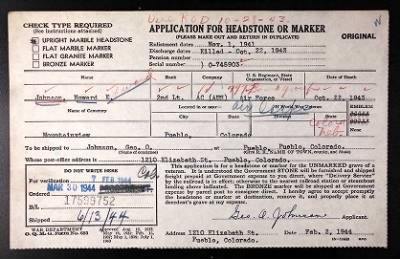 Ver. KCD 10-29-43.
CHECK TYPE REQUIRED
(See instructions attached)
APPLICATION FOR HEADSTONE OR MARKER
(PLEASE MAKE OUT AND RETURN IN DUPLICATE)
ORIGINAL
UPRIGHT MARBLE HEADSTONE
FLAT MARBLE MARKER
FLAT GRANITE MARKER
BRONZE MARKER
Enlistment dates Nov. 1, 1941
Discharge dates Killed - Oct. 22, 1943
Pension number
Serial number O-745903
Name
Rank
Company
U. S. Regiment, State Organization, or Vessel
Date of Death
Johnson, Howard E. 2nd Lt. AC (ABM) Air Force Oct. 22, 1943
Name of Cemetery
Located in or Near
EMBLEM
Air Corps
Mountainview Pueblo, Colorado
To be shipped to Johnson, Geo. O. at Pueblo, Pueblo, Colorado.
Whose post-office address is 1210 Elizabeth St., Pueblo, Colorado.
DO NOT WRITE HERE
For verification 7 FEB 1944
Ordered MAR 30 1944
17599752
B/L
Shipped 6/13/44
This application is for a headstone or marker for the UNMARKED grave of a
veteran. It is understood the Government STONE will be furnished and shipped
freight prepaid at Government expense to you
The BRONZE marker will be shipped at Government expense by
parcel post to consignee direct. I hereby agree to accept promptly
the headstone or marker at destination, remove it, and properly place it at
decedent's grave at my expense.
Geo. O. Johnson
Applicant.
WAR DEPARTMENT
O. Q. M. G. FORM No. 623
1210 Elizabeth St. Feb. 2, 1944
Pueblo, Colorado.